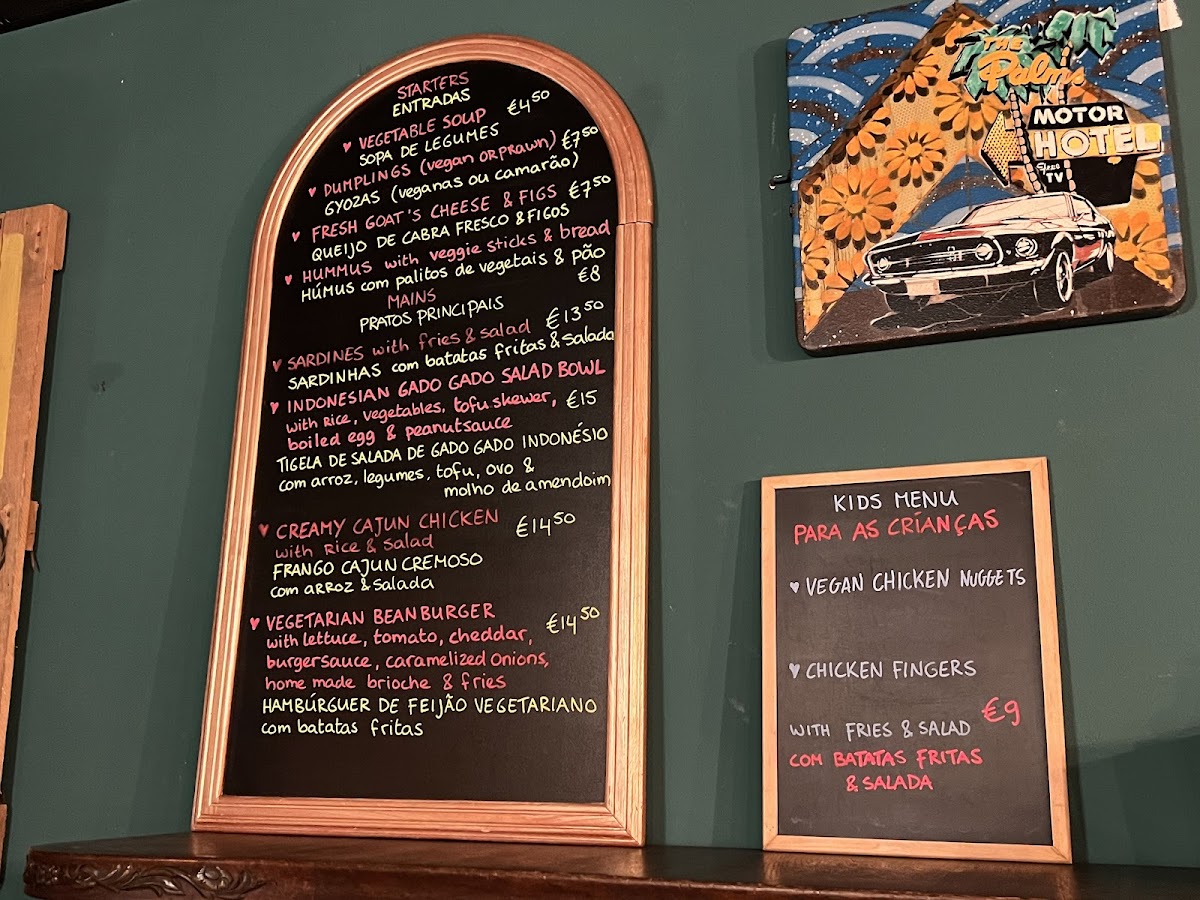 STARTERS
ENTRADAS
♥ VEGETABLE SOUP €4.50
SOPA DE LEGUMES
♥ DUMPLINGS (vegan or prawn) €7.50
GYOZAS (veganas ou camarão)
♥ FRESH GOAT'S CHEESE & FIGS €7.50
QUEIJO DE CABRA FRESCO & FIGOS
♥ HUMMUS with veggie sticks & bread
HÚMUS com palitos de vegetais & pão
€8
MAINS
PRATOS PRINCIPAIS
♥ SARDINES with fries & salad €13.50
SARDINHAS com batatas fritas & Salada
♥ INDONESIAN GADO GADO SALAD BOWL
with Rice, vegetables, tofu skewer, €15
boiled egg & peanutsauce
TIGELA DE SALADA DE GADO GADO INDONÉSIO
com arroz, legumes, tofu, ovo &
molho de amendoim
♥ CREAMY CAJUN CHICKEN €14.50
with Rice & Salad
FRANGO CAJUN CREMOSO
com arroz & Salada
♥ VEGETARIAN BEANBURGER €14.50
with lettuce, tomato, cheddar,
burgersauce, caramelized onions,
home made brioche & fries
HAMBÚRGUER DE FEIJÃO VEGETARIANO
com batatas fritas
THE
Palms
MOTOR
HOTEL
TV
KIDS MENU
PARA AS CRÍANÇAS
♥ VEGAN CHICKEN NUGGETS
♥ CHICKEN FINGERS
€9
WITH FRIES & SALAD
COM BATATAS FRITAS
& SALADA